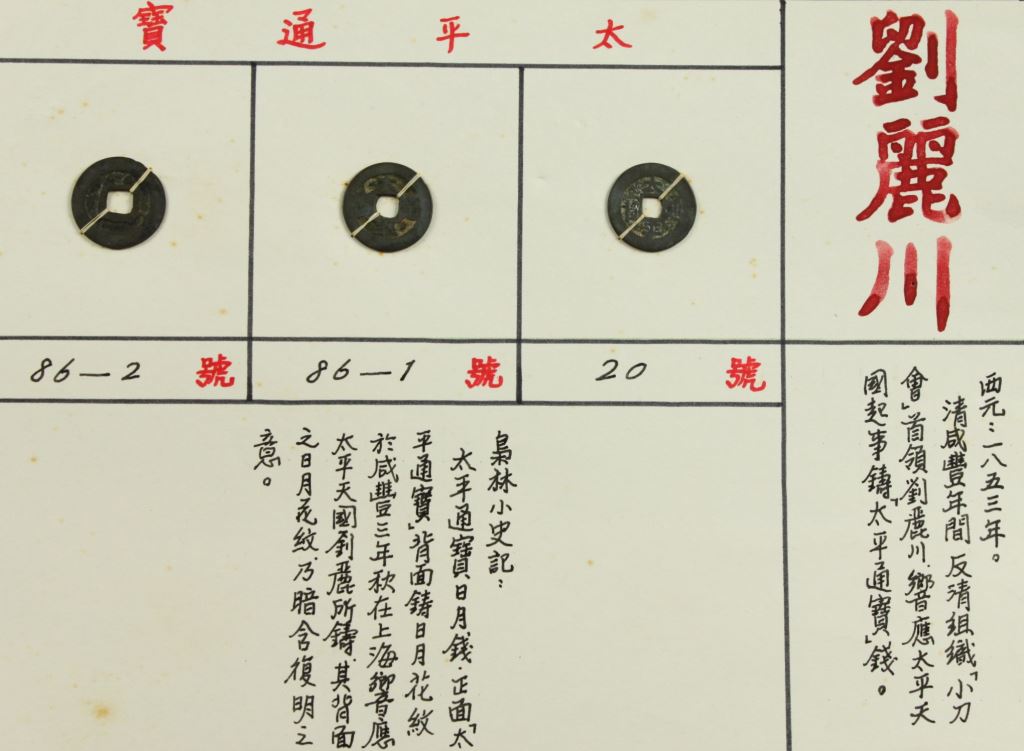 劉麗川
西元：一八五三年。
清咸豐年間反清組織「小刀
會」首領劉麗川.響應太平天
國起事鑄「太平通寶」錢。
太平通寶
20 號
86-1 號
86-2 號
梟林小史記：
太平通寶日月錢.正面「太
平通寶」背面鑄日月花紋
於咸豐三年秋在上海響應
太平天國劉麗所鑄.其背面
之日月花紋.乃暗含復明之
意。